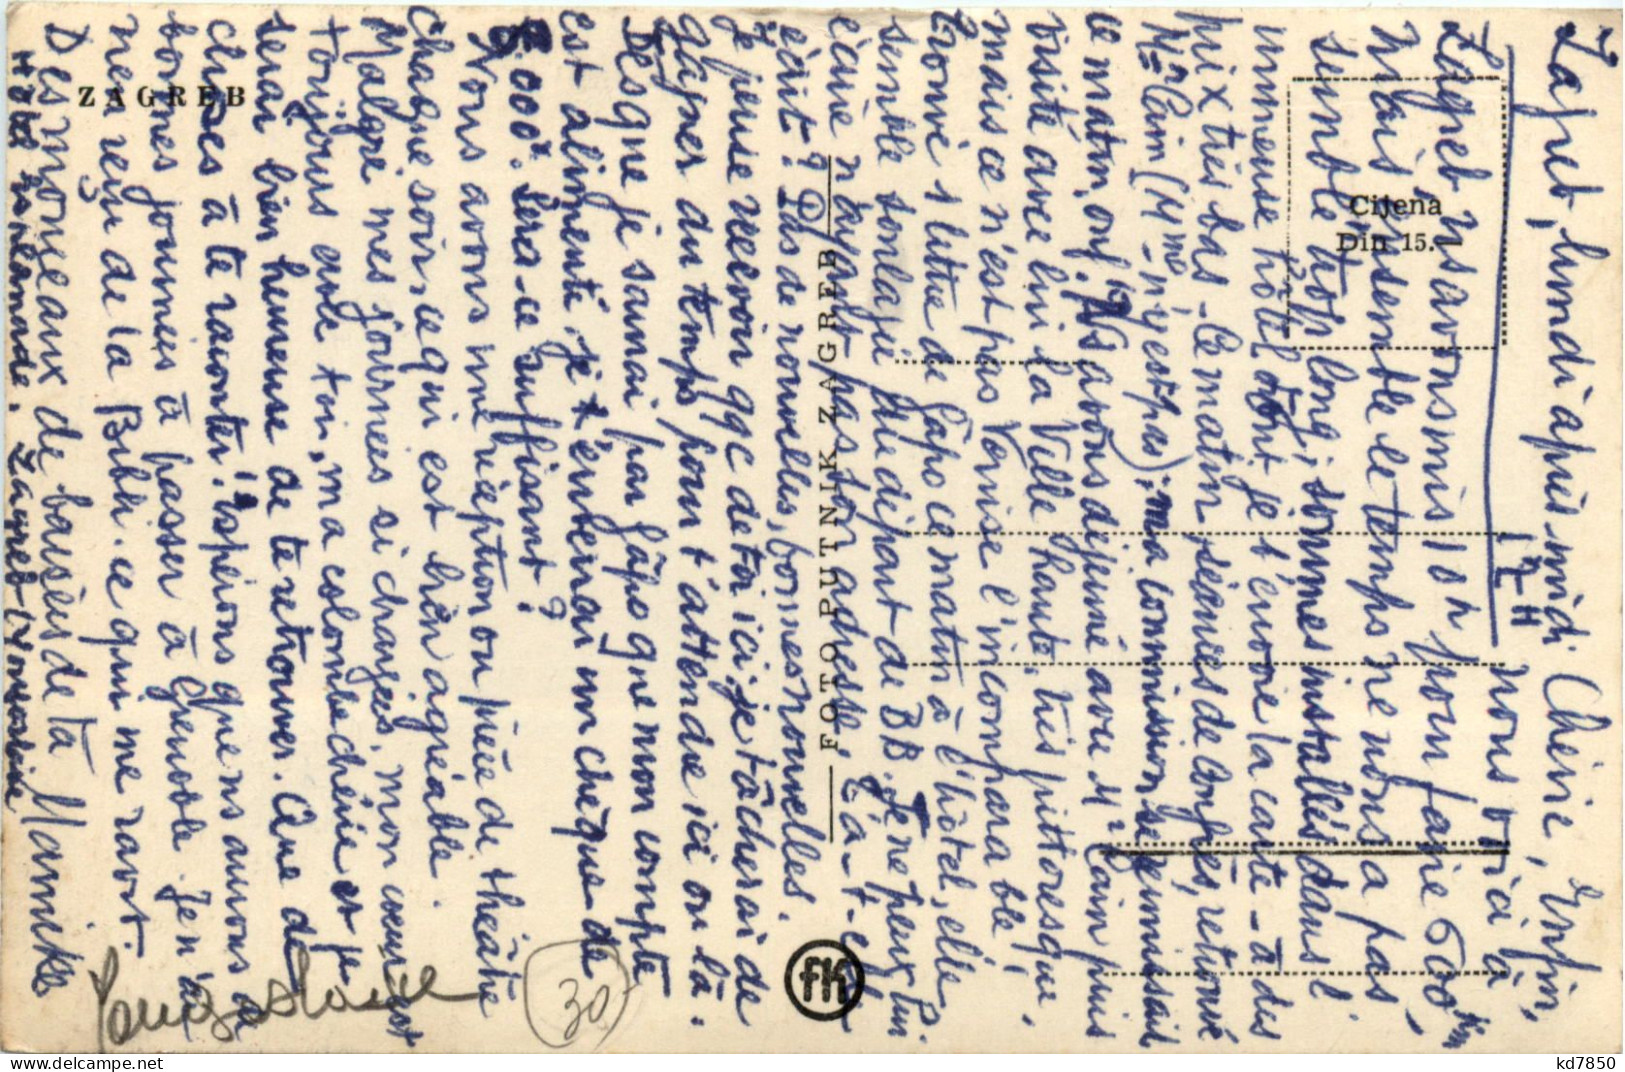 Zagreb, lundi après midi Chérie, Enfin,
17 H nous voici à
Zagreb ns avons mis 10 h pour faire 600 km
mais ensemble le temps ne nous a pas
semblé trop long, sommes installés dans l'
immense hôtel dont je t'envoie la carte - à des
prix très bas - Ce matin séances de Congrès, retrouvé
Mr Cain (Mme n'y est pas), ma commission se réunissait
le matin, ouf! Ns avons déjeuné avec Mr Cain puis
visité avec lui la Ville haute, très pittoresque,
mais ce n'est pas Venise l'incomparable!
Trouvé 1 lettre de Gàpo ce matin à l'hôtel, elle
semble soulagée du départ de BB. Je ne peux lui
écrire n'ayant pas son adresse, t'a-t-elle
écrit? Pas de nouvelles, bonnes nouvelles.
Je pense recevoir qqc de toi ici, je tâcherai de
gagner du temps pour t'attendre ici ou là.
Dès que je saurai par Gàpo que mon compte
est alimenté, je t'enverrai un chèque de
8.000. Sera-ce suffisant?
Nous avons une réception ou pièce de théâtre
chaque soir, ce qui est bien agréable.
Malgré mes journées si chargées, mon cœur est
toujours avec toi, ma colombe chérie et je
serai bien heureuse de te retrouver. Que de
choses à te raconter! Espérons que ns aurons de
bonnes journées à passer à Grenoble. Je n'ai
rien reçu de la Bibli. ce qui me ravit.
Des monceaux de baisers de ta Mamike
Zagreb (Yougoslavie
Yougoslavie
30
ZAGREB
FOTO PUTNIK ZAGREB
fK
Cijena
Din 15.-
kd7850